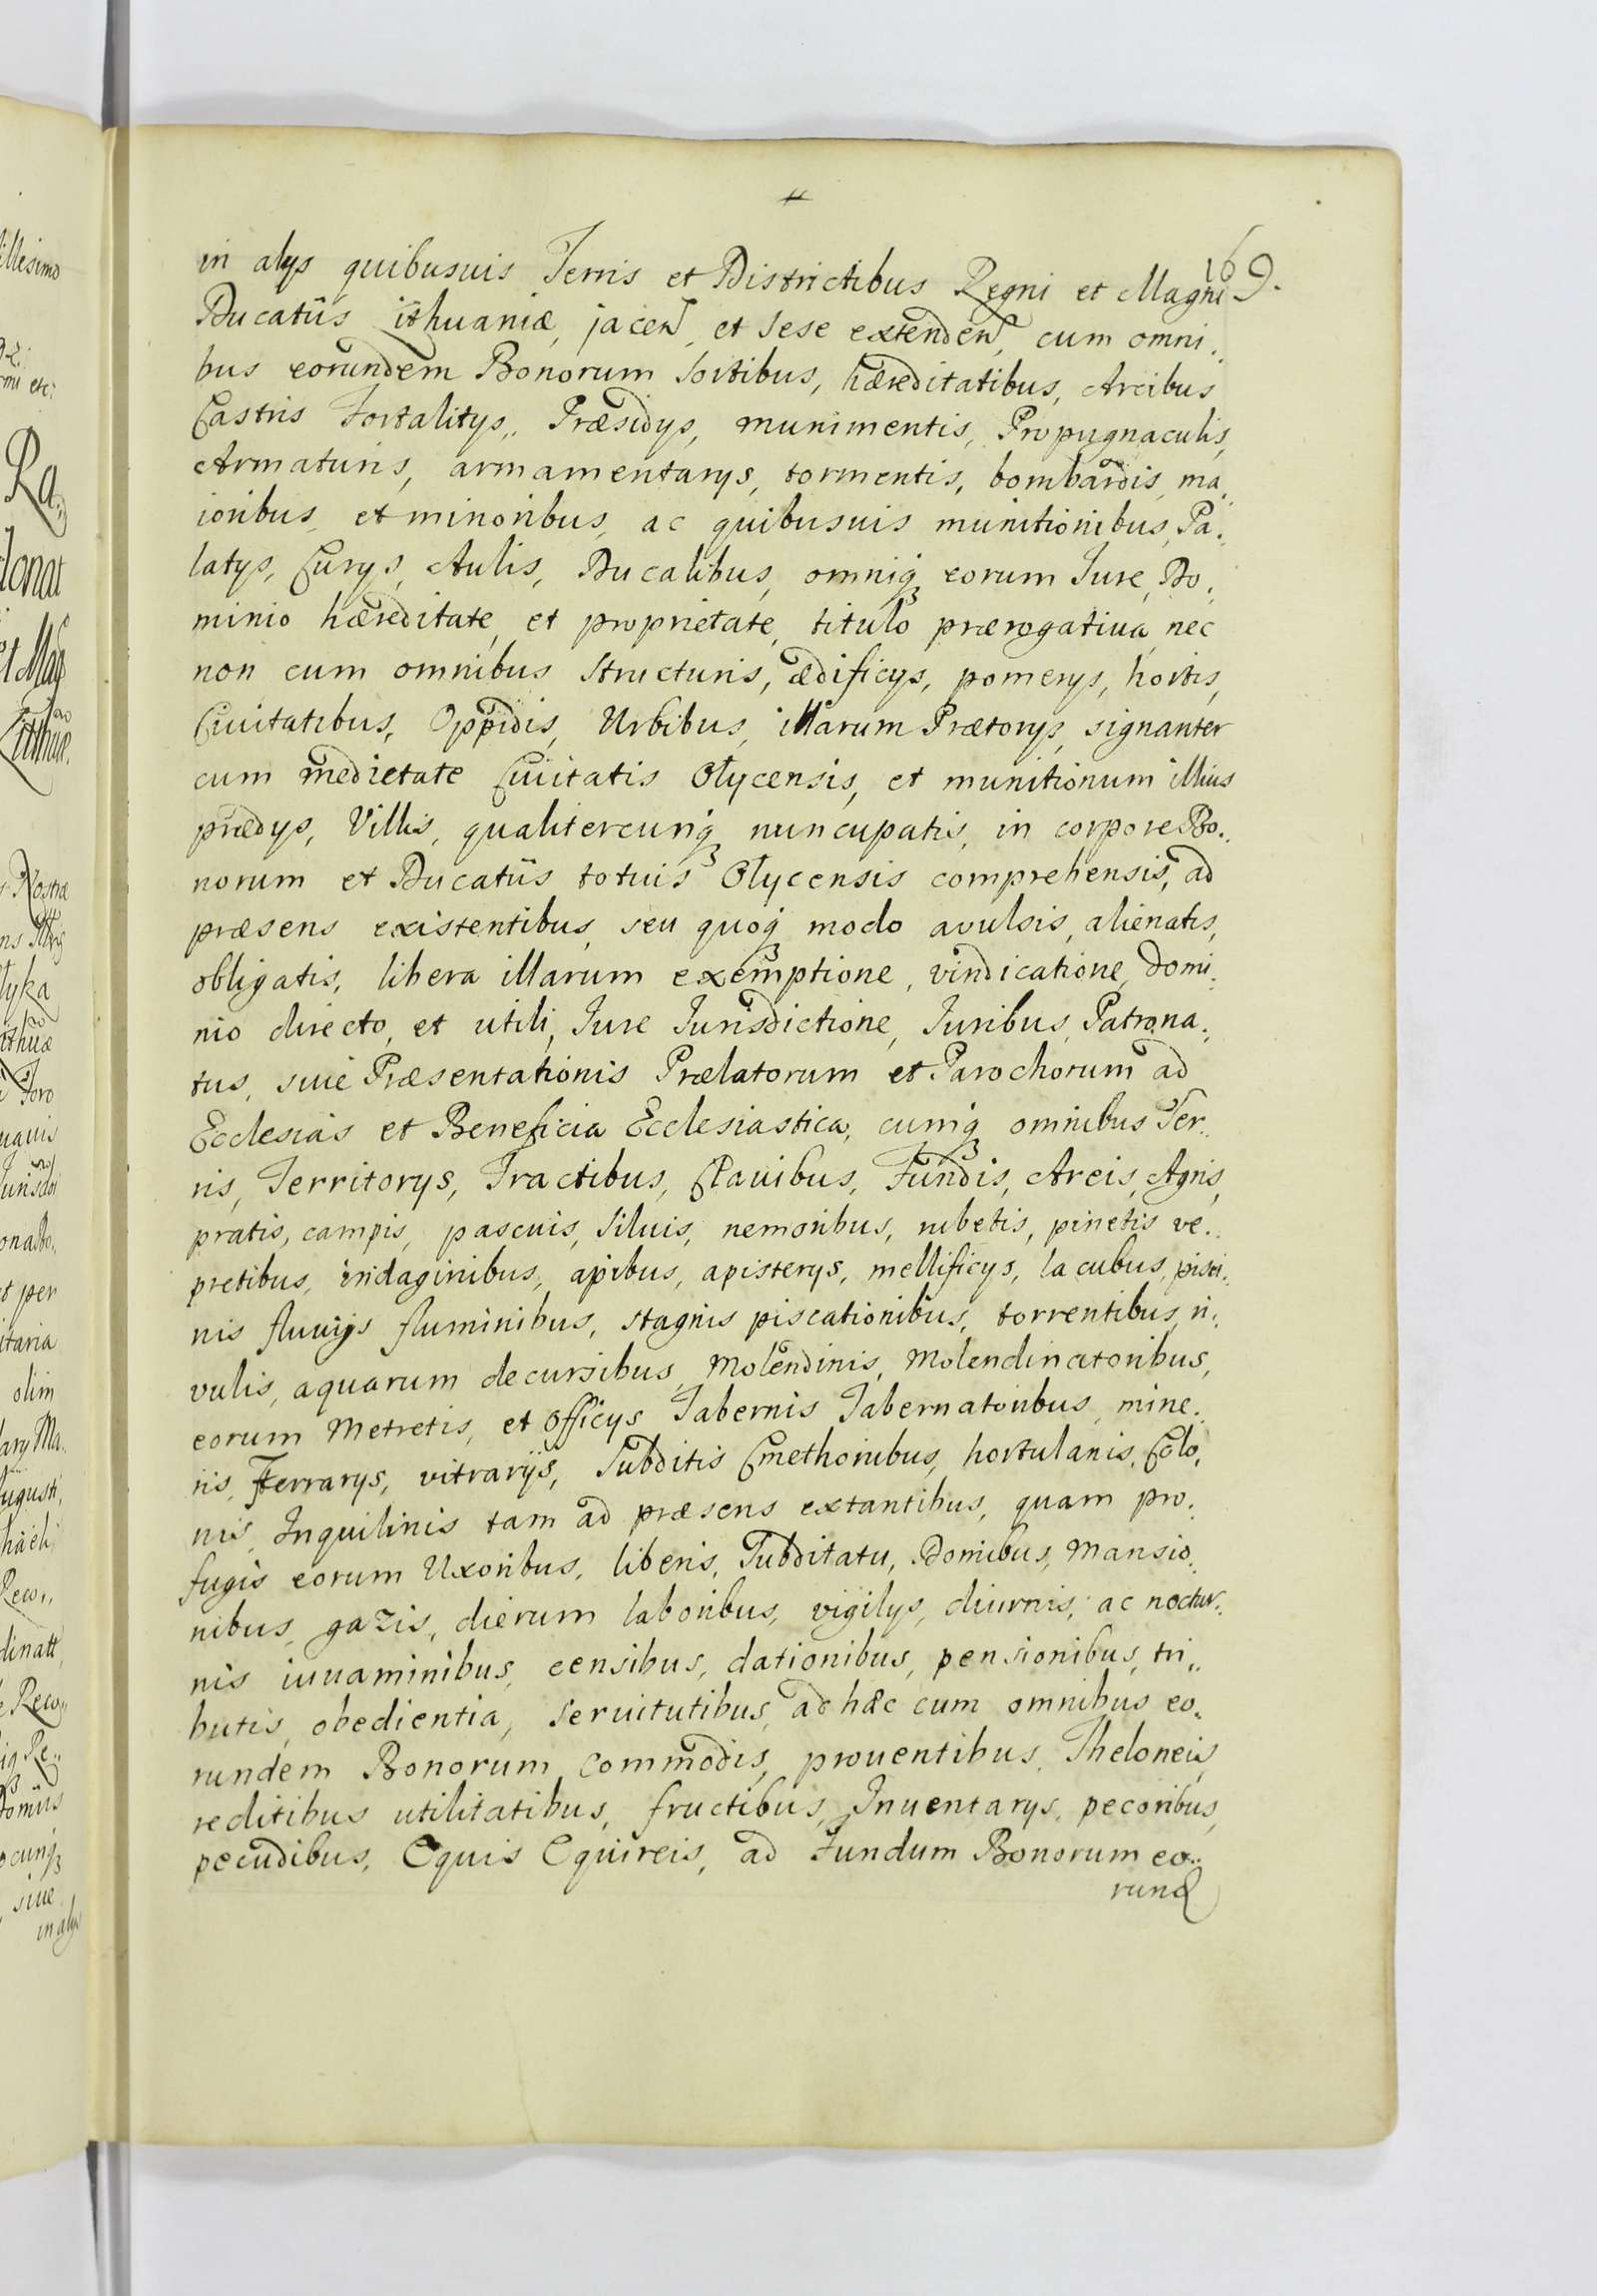 169.
in alys quibusuis Terris et Districtibus Regni et Magni
Ducatûs Lithuaniæ, jacen, et sese extenden, cum omni„
bus eorundem Bonorum sortibus, hæreditatibus, Arcibus
Castris Fortalitys„ Præsidys, munimentis, Propugnaculis,
Armaturis, armamentarys, tormentis, bombardis, ma„
ioribus, et minoribus, ac quibusuis munitionibus, Pa„
latys, Curys, Aulis, Ducalibus, omniq eorum Jure, Do„
minio hæreditate, et proprietate, titulo prærogatiua, nec
non cum omnibus structuris, ædificys, pomerys, hortis,
Ciuitatibus, Oppidis, Urbibus, illarum Prætorys, signanter
cum medietate Ciuitatis Olycensis, et munitionum illius
prædys, Villis, qualitercunq nuncupatis, in corpore Bo„
norum et Ducatûs totuis Olycensis comprehensis, ad
præsens existentibus, seu quoq modo avulsis, alienatis,
obligatis, libera illarum exemptione, vindicatione, domi„
nio directo, et utili, Jure Jurisdictione, Juribus, Patrona„
tus, siue Præsentationis Prælatorum et Parochorum ad
Ecclesias et Beneficia Ecclesiastica, cumq omnibus Ter„
ris, Territorys, Tractibus, Clauibus, Fundis, Areis, Agris,
pratis, campis, pascuis, Siluis, nemoribus, rubetis, pinetis ve„
pretibus, indaginibus, apibus, apisterys, mellificys, lacubus, pisci„
nis fluuijs fluminibus, stagnis piscationibus, torrentibus, ri„
vulis, aquarum decursibus, Molendinis, Molendinatoribus,
eorum Metretis, et Officys Tabernis Tabernatoribus, mine„
ris, Ferrarys, vitrarijs, Subditis Cmethonibus, hortulanis, Colo„
nis, Inquilinis tam ad præsens extantibus, quam pro„
fugis eorum Uxoribus, liberis, Subditatu, Domibus, Mansio„
nibus, gazis, dierum laboribus, vigilys, diurnis, ac noctur„
nis iuuaminibus, censibus, dationibus, pensionibus, tri„
butis, obedientia, seruitutibus, ad hæc cum omnibus eo„
rundem Bonorum commodis, prouentibus, Theloneis,
reditibus utilitatibus, fructibus, Inuentarys, pecoribus,
pecudibus, Equis Equireis, ad Fundum Bonorum eo„
rund